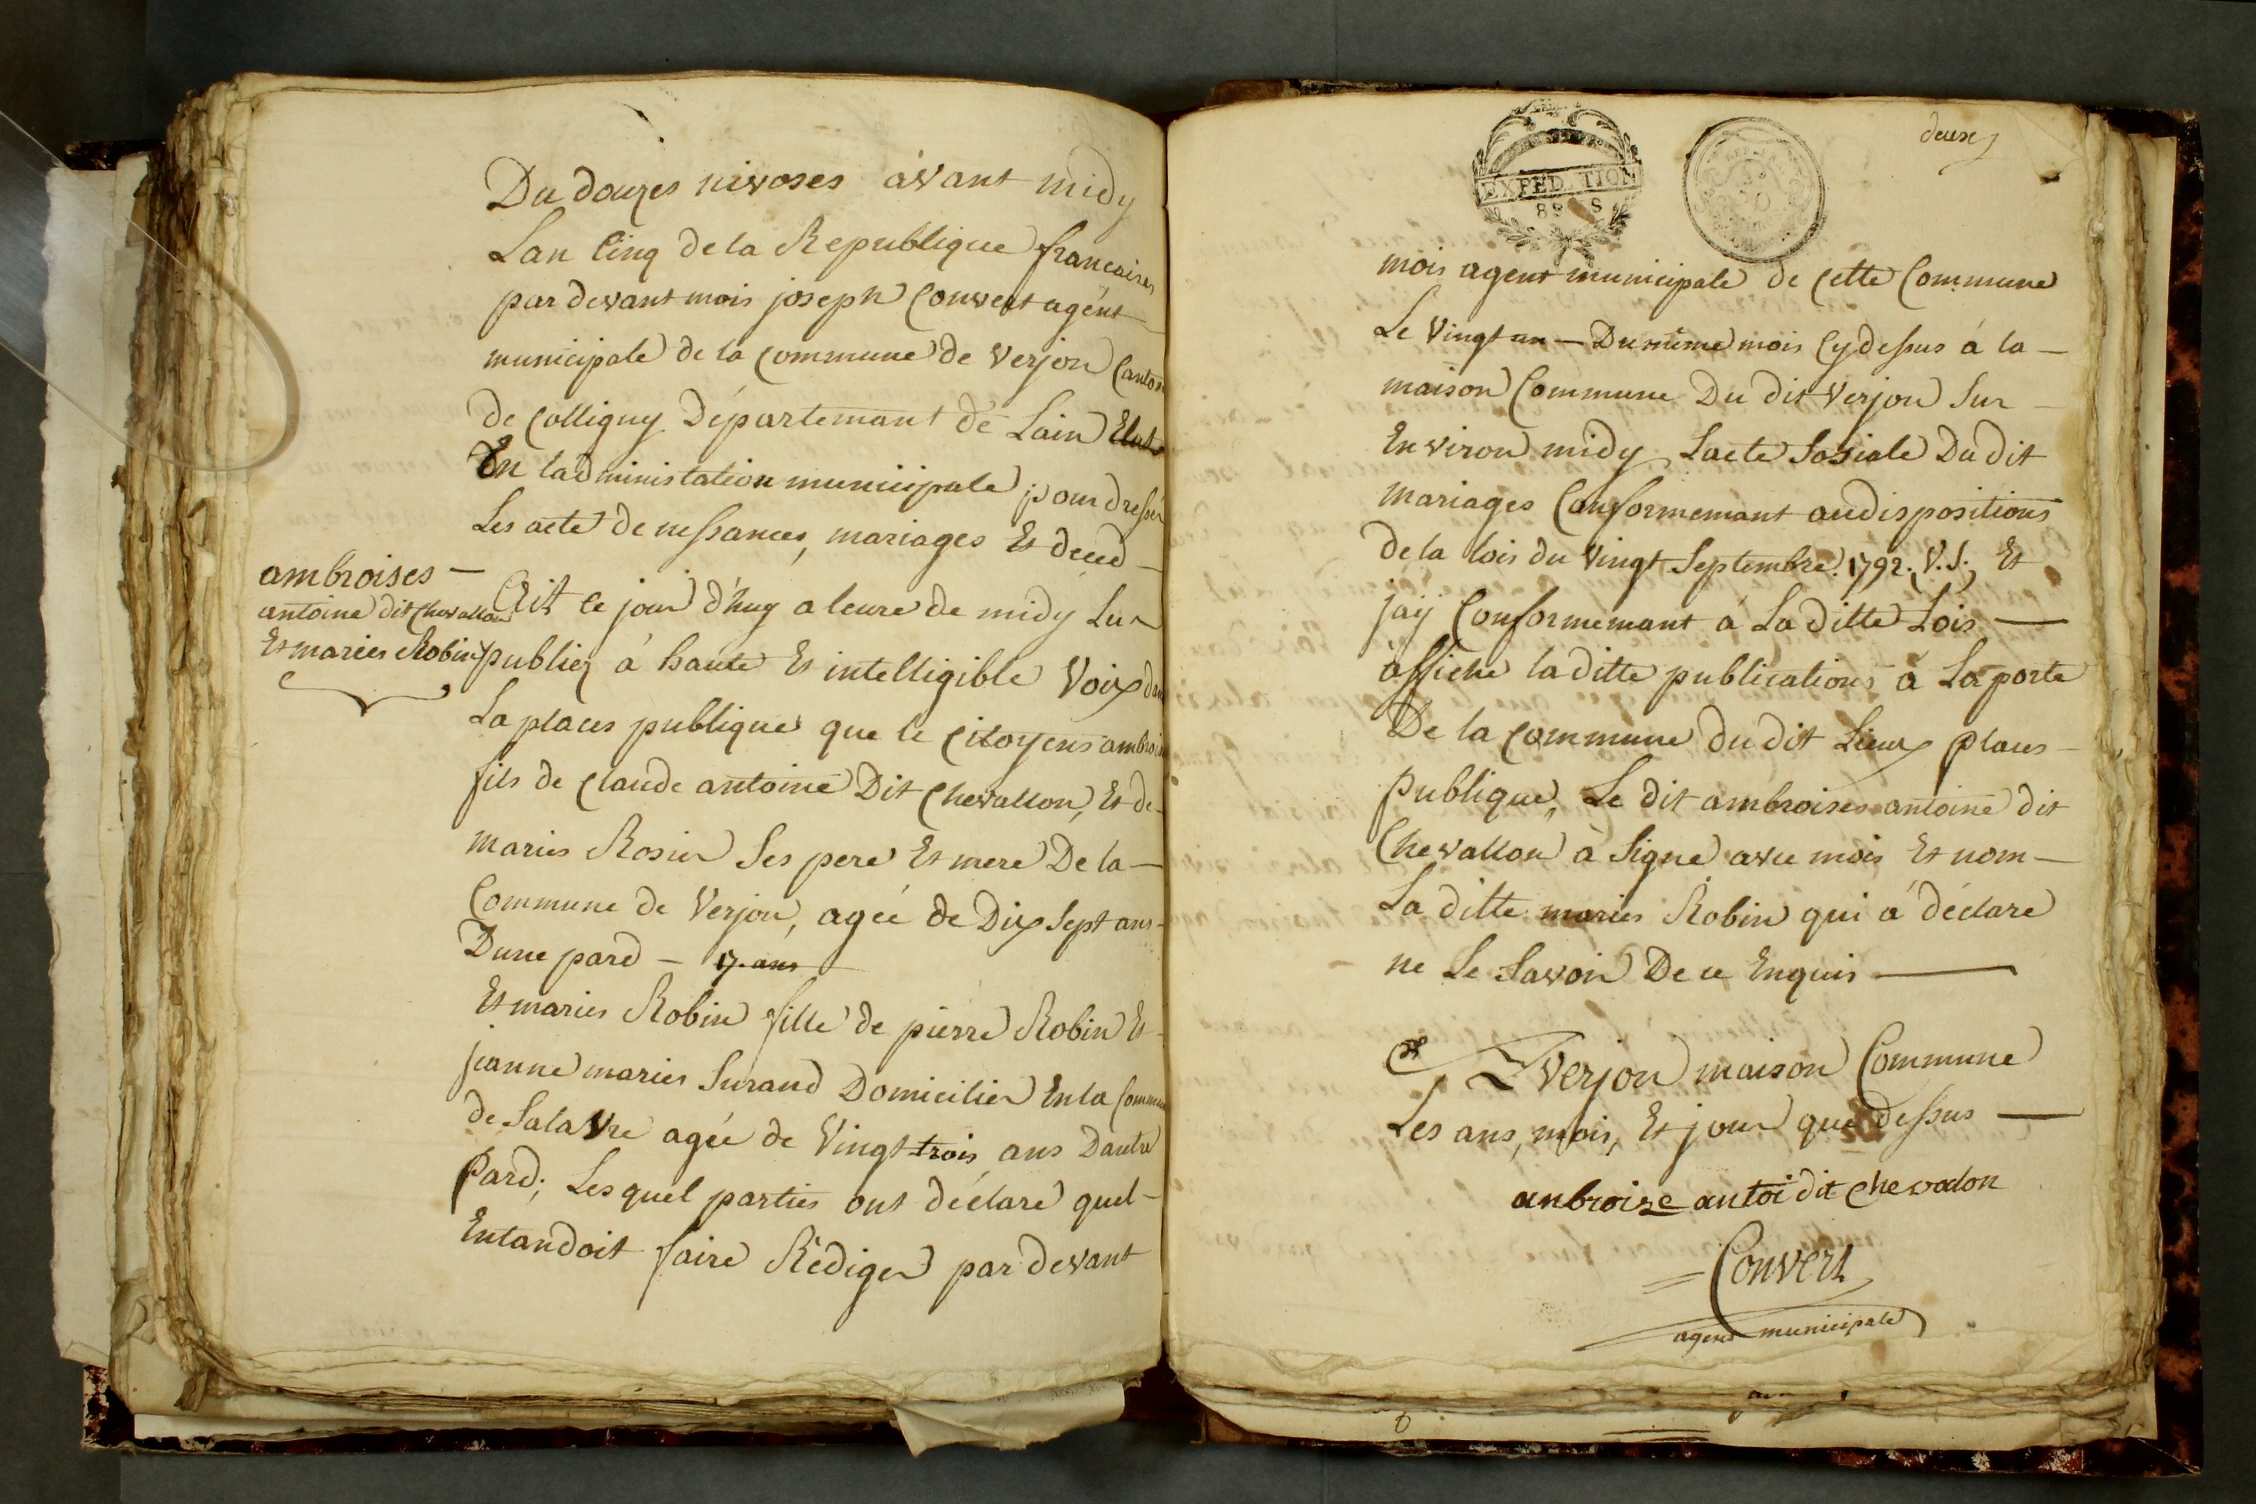 Du douzes nivoses avant midy
Lan Cinq de la Republique francaises
par devant mois joseph Convert agent
municipale de la Commune de Verjon Canton
de Colligny Départemant de Lain
En ladministation municipale pour dresser
Les acte de nessances, mariages Et deced
ambroises —
antoine dit Chevallon
Et maries Robin
ce jour d'huy a leure de midy Lu
publiez à haute Et intelligible Voix
La places publique que le Citoyens ambroises
fils de Claude antoine Dit Chevallon, Et de
maries Rosier Ses pere Et mere De la —
Commune de Verjon, ageé de Dix Sept ans
Dune pard — 17. ans
Et maries Robin fille de pierre Robin Et
jeanne maries Surand Domicilier En la Commune
de Salavre ageé de Vingt trois ans Dautre
Pard; Lesquel parties ont déclare quel-
Entandoit faire Rédiger par devant
deux
EXPEDITION
mois agent municipale de Cette Commune
Le Vingt un — Du même mois Cy dessus á la —
maison Commune Du dit Verjon Sur
Environ midy Lacte Sosiale Du dit
mariages Conformemant au dispositions
de la lois du Vingt Septembre. 1792. V.S. Et
jaij Conformemant á La ditte Lois —
affiche la ditte publications á La porte
De la Commune du dit Lieux places
Publique, Le dit ambroises antoine dit
Chevallon à Signe avec mois Et nom —
La ditte maries Robin qui á déclare
ne Le Savoir De ce Enquis —
Verjon maison Commune
Les ans, mois, Et jour que dessus —
anbroise antoi dit chevalon
Convert
agent municipale